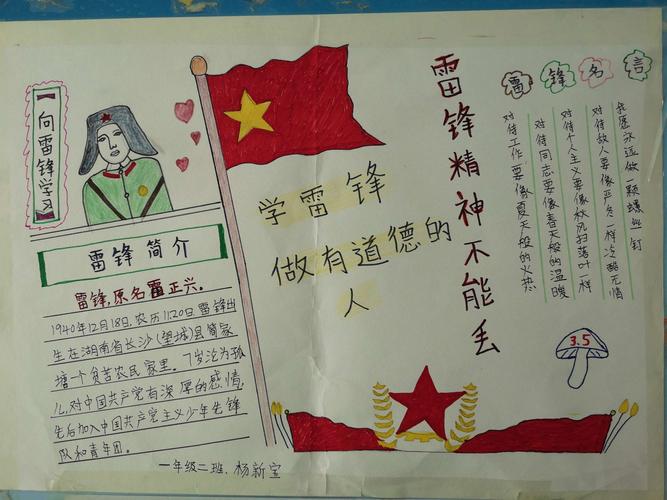 【向雷锋学习】
雷锋简介
雷锋，原名雷正兴。
1940年12月18日，农历11.20日雷锋出
生在湖南省长沙（望城）县简家
塘一个贫苦农民家里。7岁沦为孤
儿，对中国共产党有深厚的感情，
先后加入中国共产党主义少年先锋
队和青年团。
一年级二班，杨新宝
学雷锋
做有道德的
人
雷锋精神不能丢
雷锋名言
我愿永远做一颗螺丝钉
对待敌人要像严冬一样冷酷无情
对待个人主义要像秋风扫落叶一样
对待同志要像春天般的温暖
对待工作要像夏天般的火热
3.5